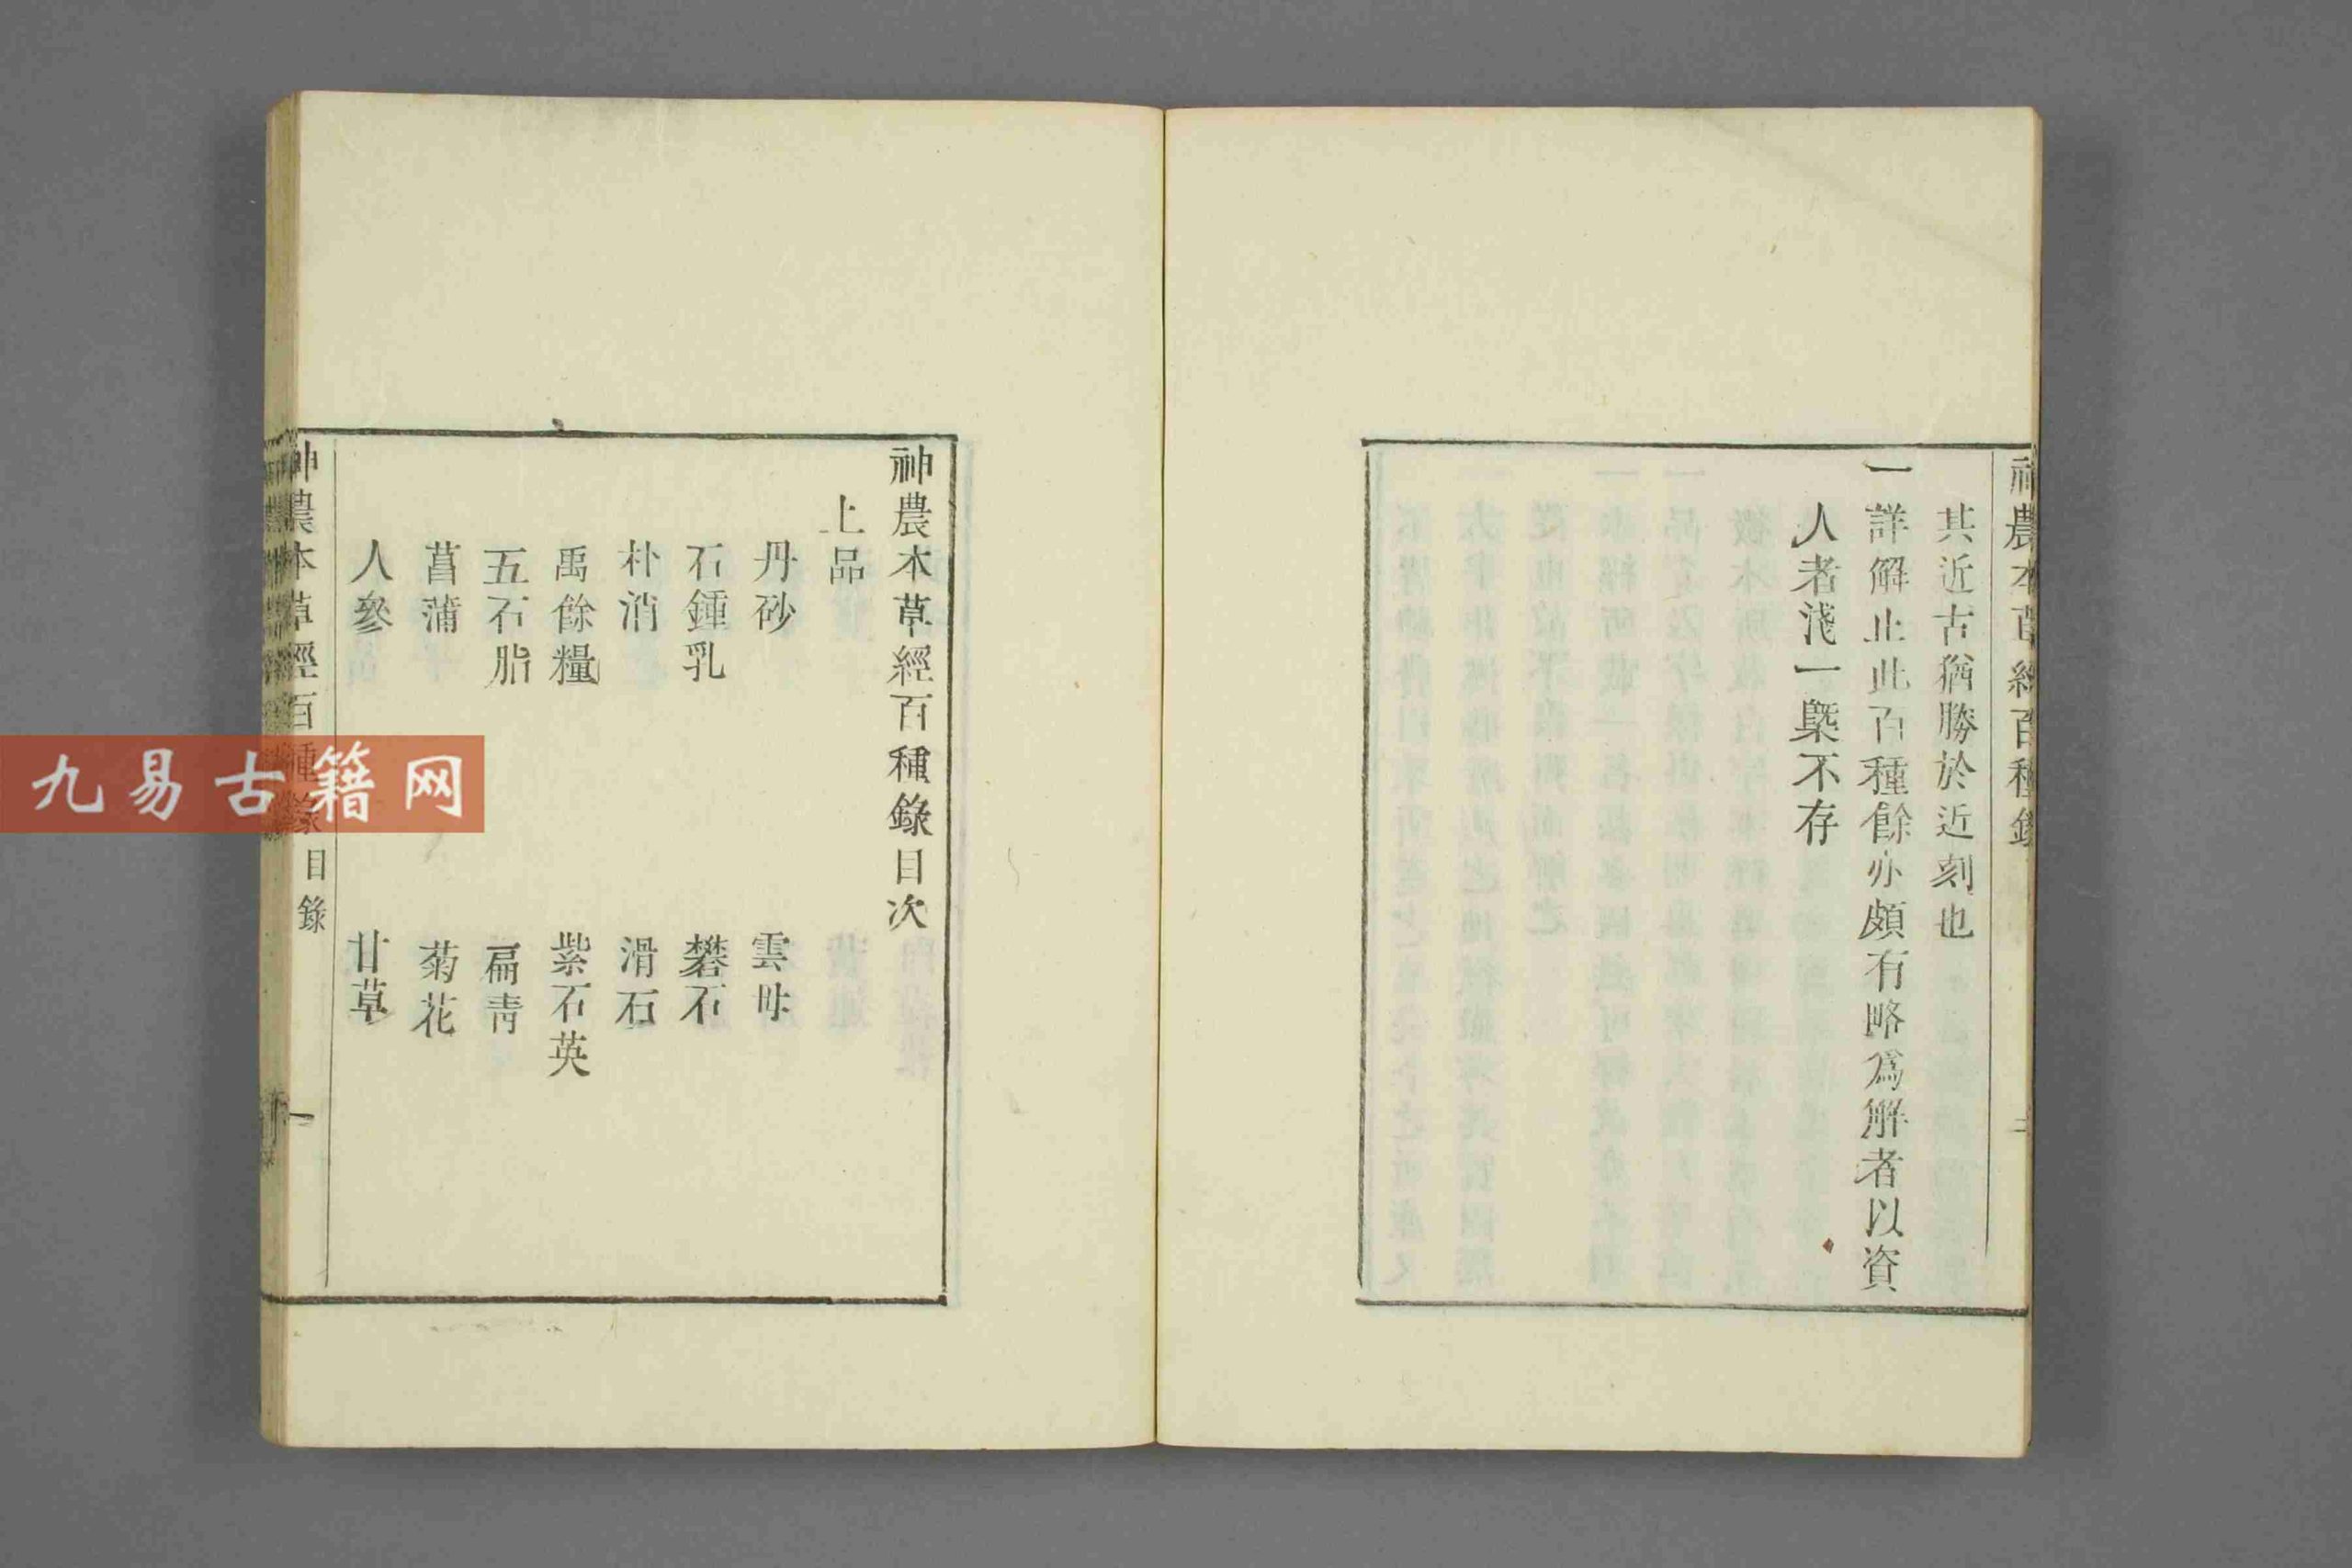 神農本草經百種錄
其近古猶勝於近刻也
一詳解止此百種餘亦頗有略爲解者以資
人者淺一槩不存
神農本草經百種錄目次
上品
丹砂 雲母
石鍾乳 礬石
朴消 滑石
禹餘糧 紫石英
五石脂 扁靑
菖蒲 菊花
人參 甘草
神農本草經百種錄 目錄 一
九易古籍网